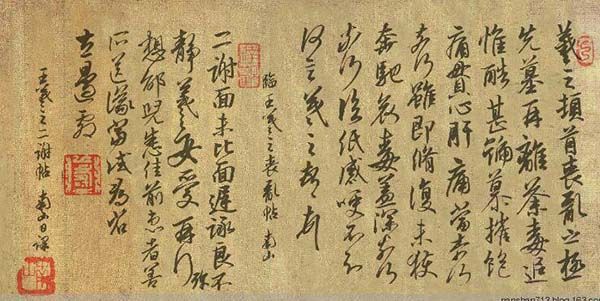 羲之頓首喪亂之極
先墓再離荼毒追
惟酷甚號慕摧絕
痛貫心肝痛當奈何
奈何雖即脩復未獲
奔馳哀毒益深奈何
奈何臨紙感哽不知
何言羲之頓首
臨王羲之喪亂帖 南山
二謝面未比面遲詠良不
靜羲女愛再行
想邰兒悉佳前患者善
所送議當試尋省
左邊劇
王羲之二謝帖 南山日課